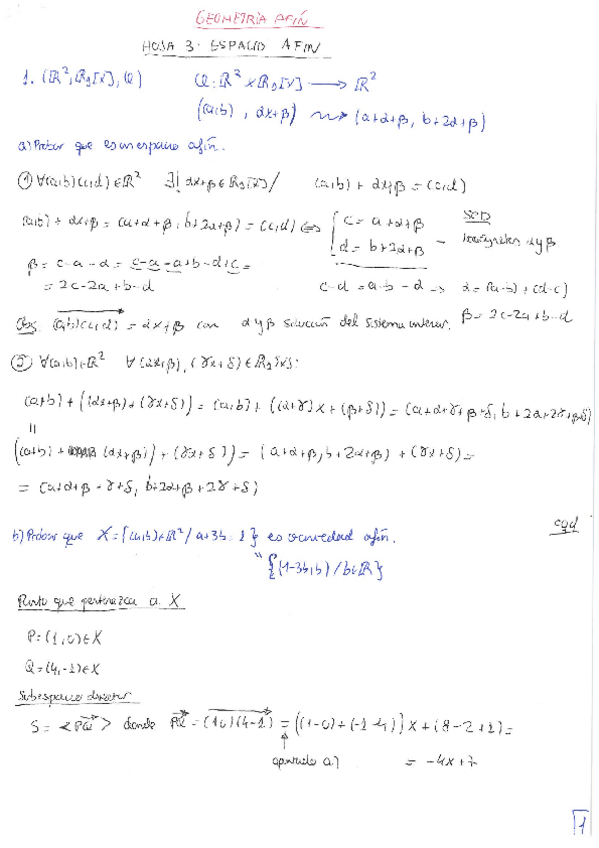 GEOMETRÍA AFÍN
HOJA 3: ESPACIO AFÍN
1. (ℝ², ℝ₁[x], φ) φ: ℝ² × ℝ₁[x] → ℝ²
((a,b), αx+β) ⇝ (a+α+β, b+2α+β)
a) Probar que es un espacio afín.
① ∀(a,b)(c,d)∈ℝ² ∃! αx+β∈ℝ₁[x] / (a,b) + αx+β = (c,d)
(a,b) + αx+β = (a+α+β, b+2α+β) = (c,d) ⇔ { c = a+α+β
d = b+2α+β SCD
incógnitas α y β
β = c-a-α = c-a-a+b-d+c =
= 2c-2a+b-d c-d = a-b-α → α = (a-b)+(d-c)
β = 2c-2a+b-d
Obs. (a,b)(c,d) = αx+β con α y β solución del sistema anterior.
② ∀(a,b)∈ℝ² ∀(αx+β), (γx+δ)∈ℝ₁[x]:
(a,b) + ((αx+β)+(γx+δ)) = (a,b) + ((α+γ)x + (β+δ)) = (a+α+γ+β+δ, b+2α+2γ+β+δ)
=
((a,b) + (αx+β)) + (γx+δ) = (a+α+β, b+2α+β) + (γx+δ) =
= (a+α+β+γ+δ, b+2α+β+2γ+δ)
cqd
b) Probar que X = {(a,b)∈ℝ² / a+3b=1} es variedad afín.
= {(1-3b,b) / b∈ℝ}
Punto que pertenezca a X
P = (1,0)∈X
Q = (4,-1)∈X
Subespacio director
S = <PQ> donde PQ = (1,0)(4,-1) = ((1-0)+(-1-4))x + (8-2+1) =
apartado a) = -4x+7
1